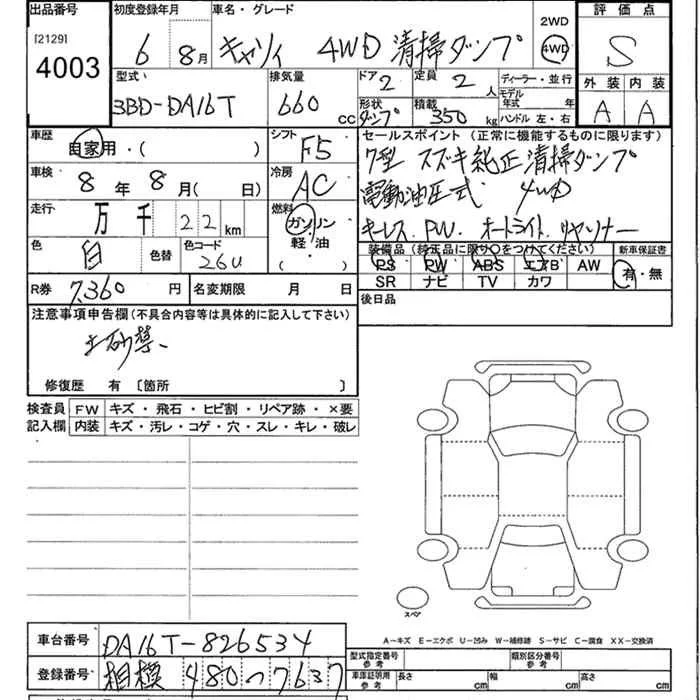 出品番号 初度登録年月 車名・グレード 2WD 評価点
[2129] 4003 6 8月 キャリイ 4WD 清掃ダンプ 4WD S
型式 排気量 ドア 2 定員 2人 ディーラー・並行 外装 内装
3BD-DA16T 660 CC 形状 ダンプ 積載 350 kg モデル年式 年 ハンドル 左・右 A A
車歴 自家用・( ) シフト F5 セールスポイント(正常に機能するものに限ります)
車検 8年8月( 日) 冷房 AC 7型 スズキ純正清掃ダンプ
電動油圧式 4WD
走行 万 千 2 2 km 燃料 ガソリン 軽油 ( ) キーレス.PW.オートライト.リヤソナー
色 白 色替 色コード 26U 装備品(純正品に限り○をつけてください) 新車保証書
PS PW ABS エアB AW 有・無
SR ナビ TV カワ
R券 7,360円 名変期限 月 日 後日品
注意事項申告欄(不具合内容等は具体的に記入して下さい)
土砂禁.
修復歴 有 [箇所 ]
検査員 FW キズ・飛石・ヒビ割・リペア跡・×要
記入欄 内装 キズ・汚レ・コゲ・穴・スレ・キレ・破レ
スペア
A-キズ E-エクボ U-凹み W-補修跡 S-サビ C-腐食 XX-交換済
車台番号 DA16T-826534
型式指定番号 参考 類別区分番号 参考
登録番号 相模 480つ7637
車庫証明用 参考 長さ cm 幅 cm 高さ cm